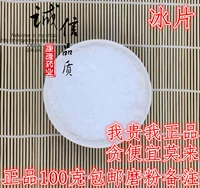 诚信品质
冰片
我贵我正品
贪便宜莫来
正品100克包邮磨粉备注